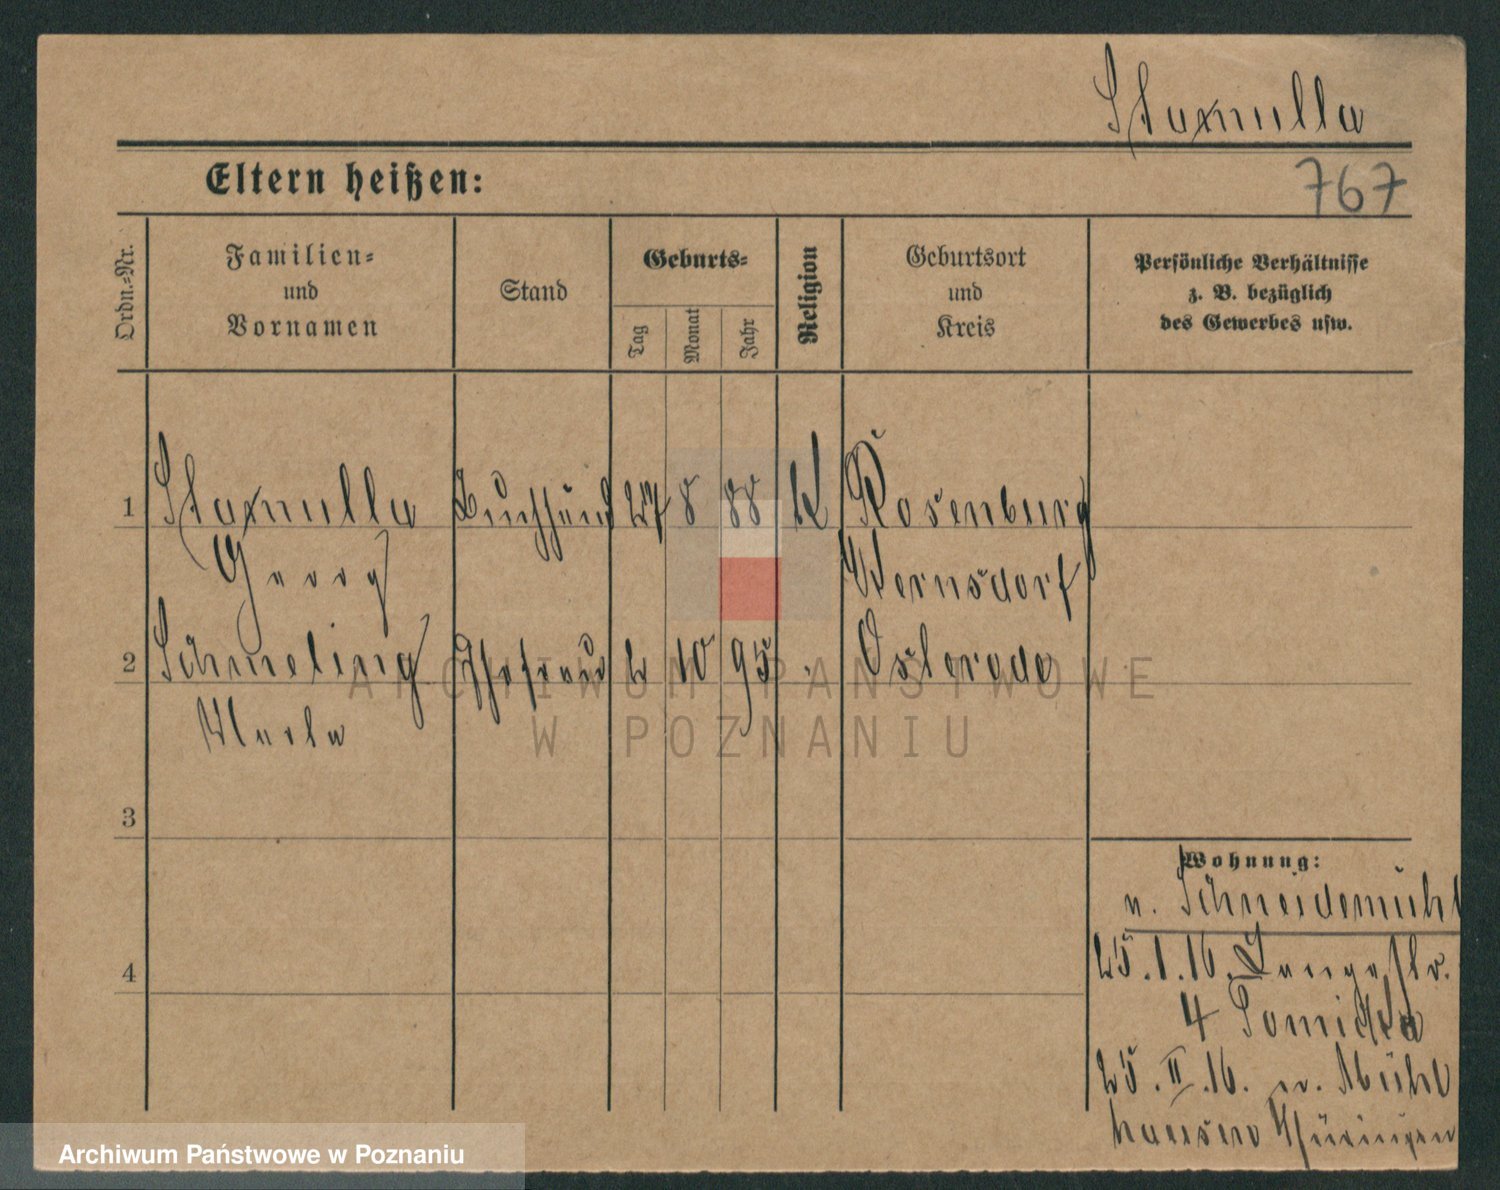 Staxmulla
Eltern heißen:
767
Ordn.-Nr.
Familien-
und
Vornamen
Stand
Geburts-
Tag
Monat
Jahr
Religion
Geburtsort
und
Kreis
Persönliche Verhältnisse
z. B. bezüglich
des Gewerbes usw.
1
Staxmulla
27 8 88 K Rosenburg
Georg
Wernsdorf
2
Schmeling Ehefrau 2 10 95 Osterode
3
Wohnung:
v. Schneidemühl
25.1.16. Langestr.
4
4 Tomicka
25.II.16. Mühl
hausen Thüringen
ARCHIWUM PAŃSTWOWE
W POZNANIU
Archiwum Państwowe w Poznaniu